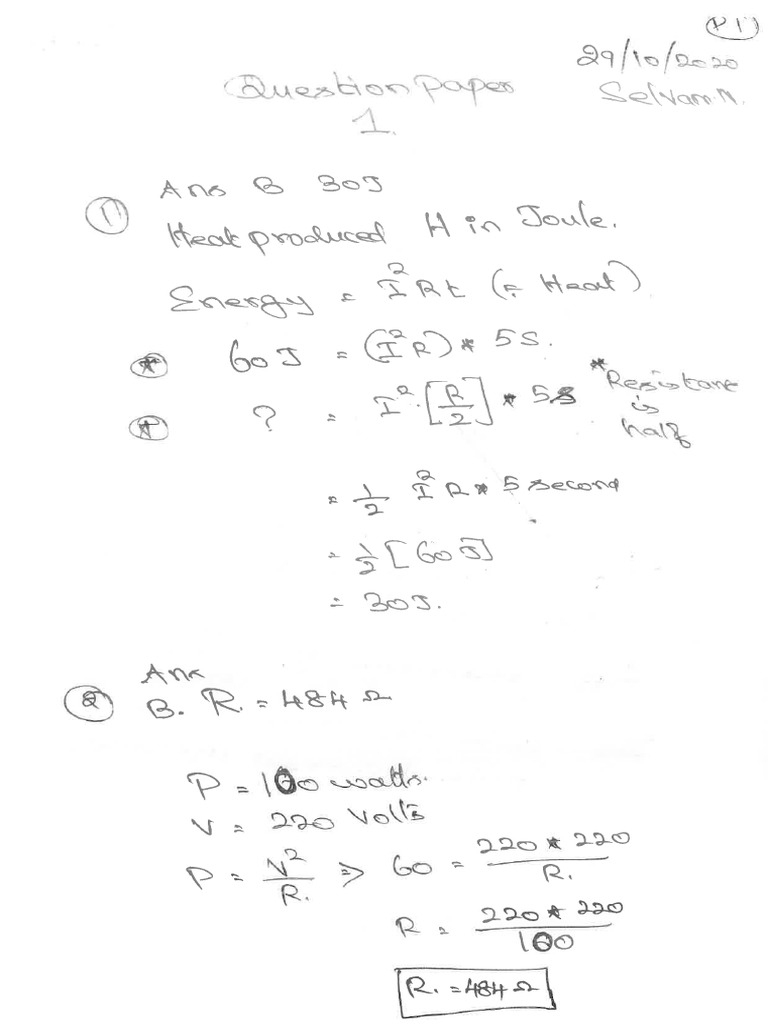 P1
29/10/2020
Question paper
Selvam.N.
1.
Ans B 30J
① Heat produced H in Joule.
Energy = I²Rt (= Heat)
* 60J = (I²R) * 5S.
* ? = I².[R/2] * 5S *Resistane is half
= 1/2 I²R * 5 second
= 1/2 [60J]
= 30J.
Ans
② B. R. = 484 Ω
P = 100 watts.
V = 220 Volts
P = V²/R. => 60 = 220 * 220/R.
R = 220 * 220/100
R. = 484 Ω